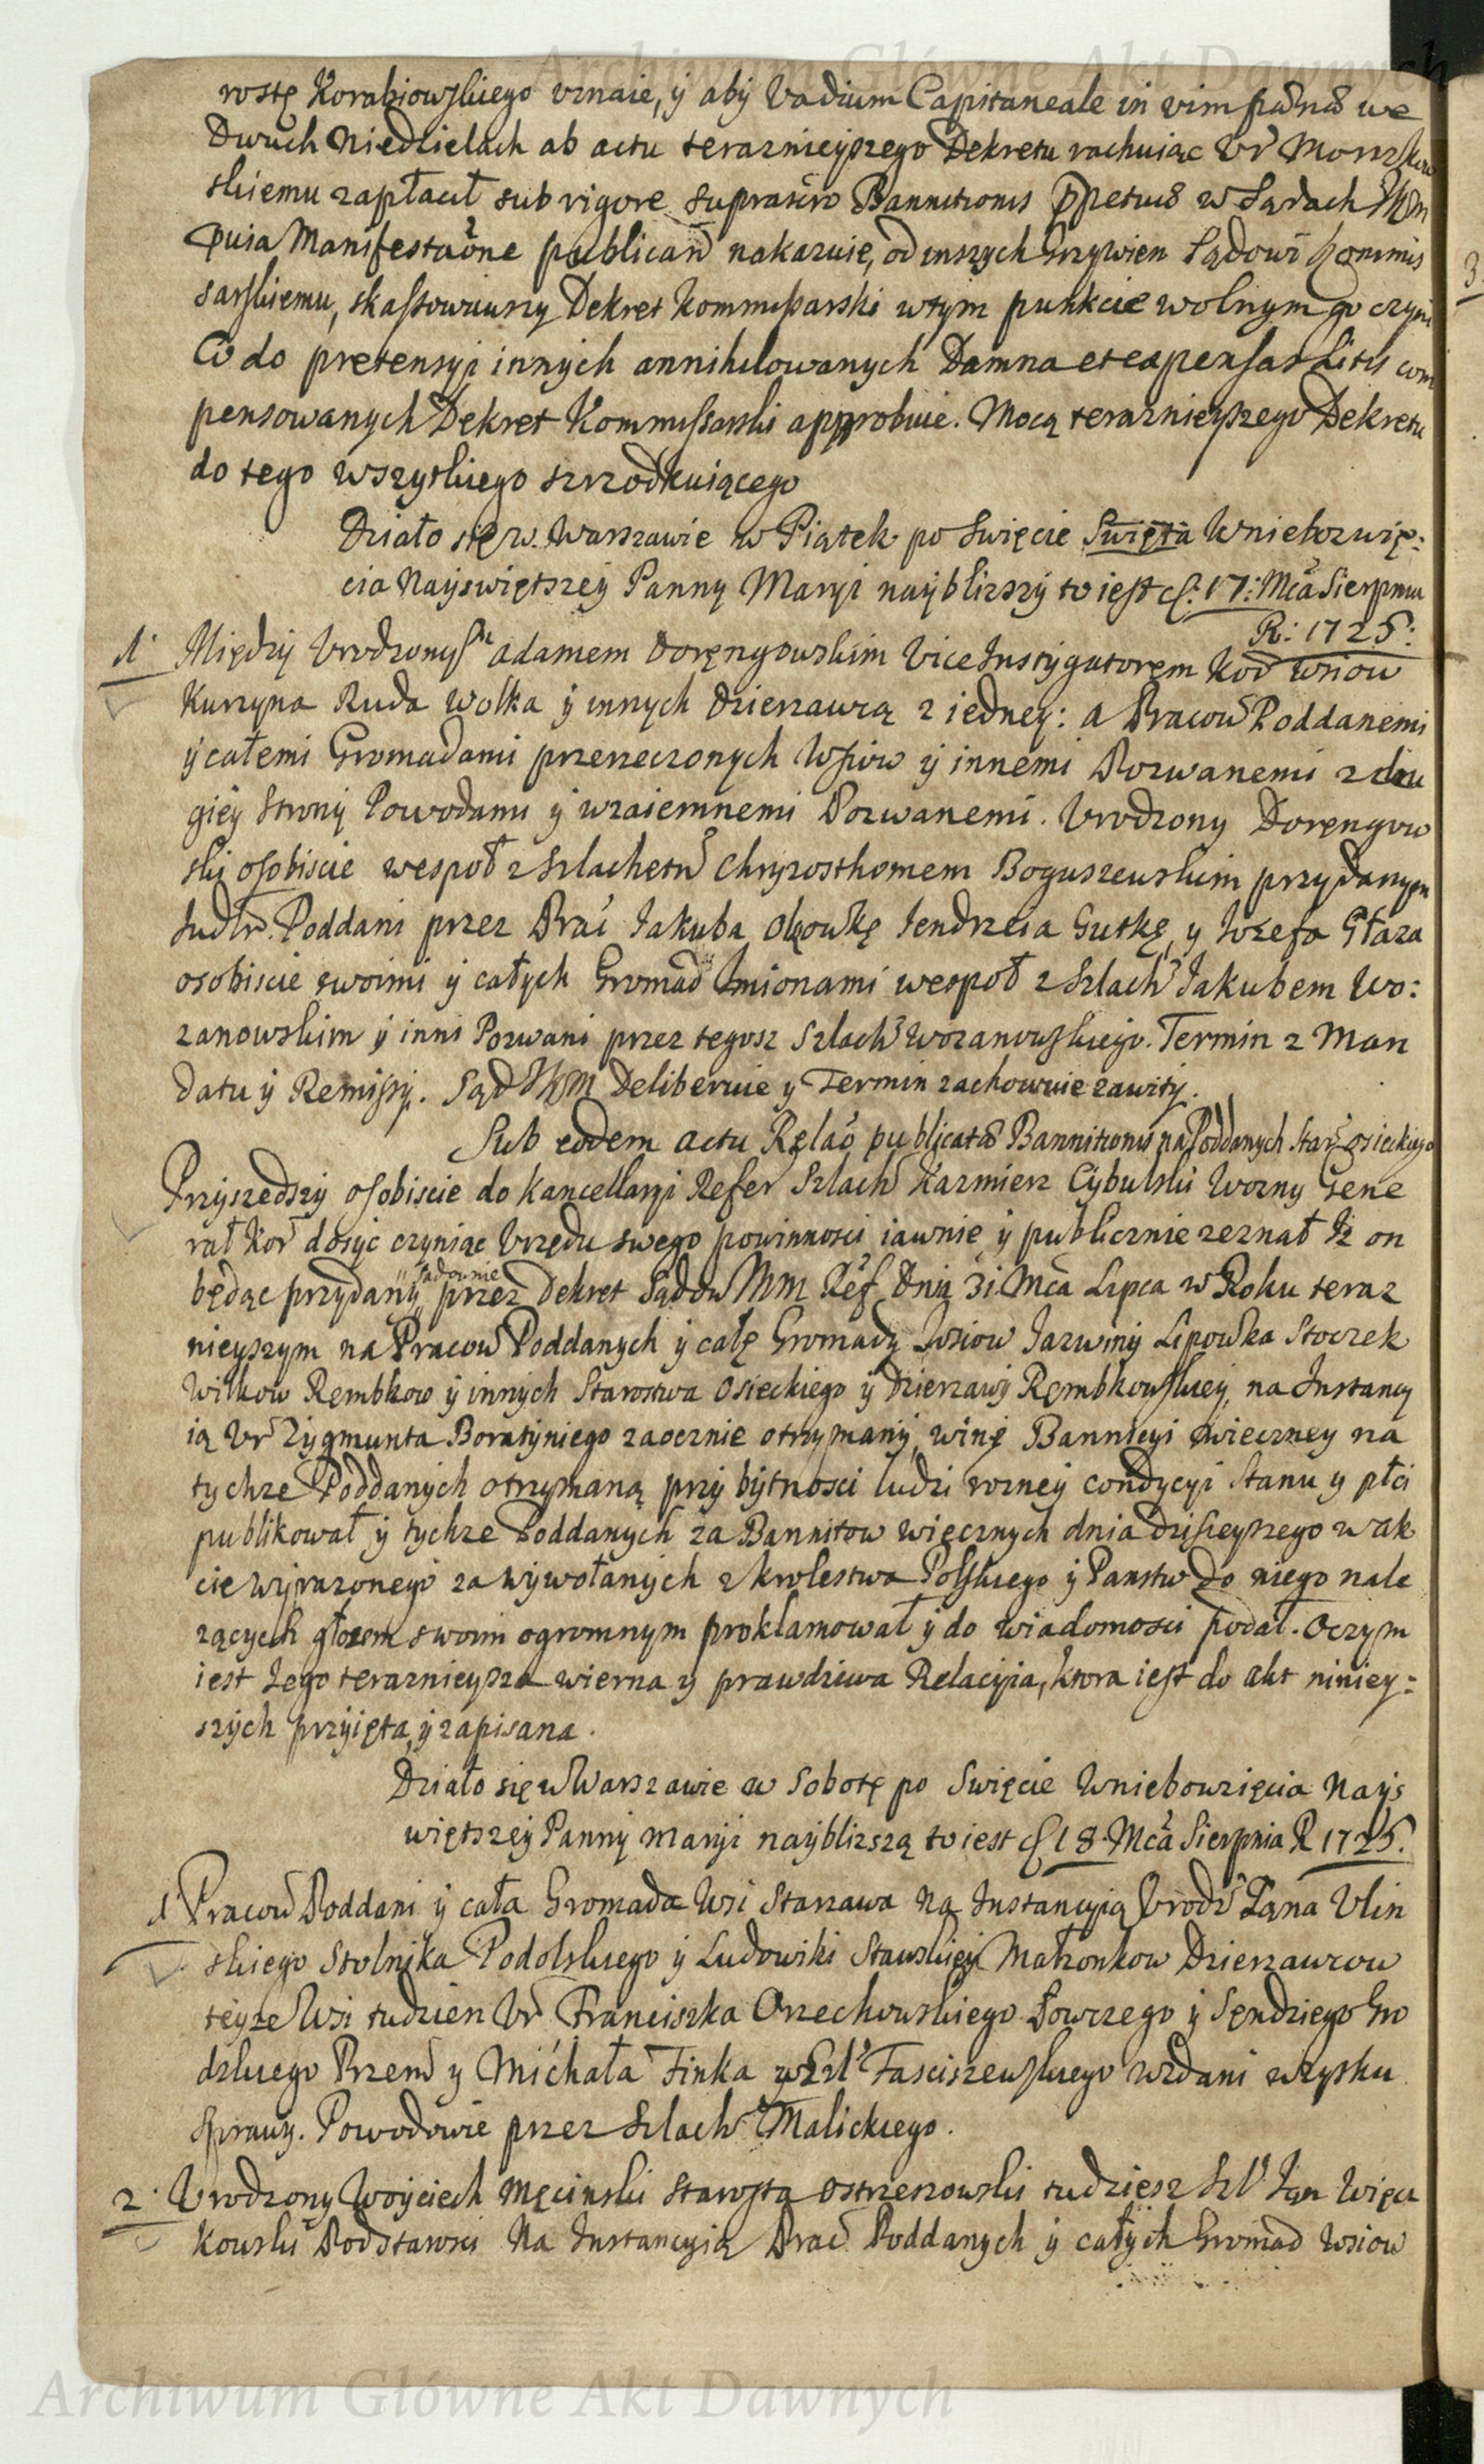 Archiwum Główne Akt Dawnych
rostę Korabiowskiego uznaie, ÿ abÿ Vadium Capitaneale in vim we
Dwuch Niedzielach ab actu teraznieÿszego Dekretu rachuiąc Ur
skiemu zapłacił sub rigore Bannitionis w Sądach
Manifestaõne nakazuie, od inszych Grzywien Sądowi Kommis
sarskiemu, skassowawszy Dekret Kommissarski w tÿm punkcie wolnÿm go czyni
Co do pretensyi innÿch annihilowanych Damna et expensas Litis com
pensowanych Dekret Kommissarski approbuie. Mocą teraznieÿszego Dekretu
do tego wszytkiego szrzodkuiącego
Działo się w Warszawie w Piątek po Swięcie Swięta Wniebozwię:
cia Naÿswiętszeÿ Pannÿ Maryi naÿblizszÿ to iest d: 17: Mca Sierpnia
R: 1725:
1 Międzÿ Urodzonym Adamem Doręngowskim Vice Instÿgatorem Kor Wsiow
Kurzyna Ruda Wolka ÿ innych Dzierzawcą z iedneÿ: a Pracow Poddanemi
ÿ całemi Gromadami przerzeczonych Wsiow ÿ innemi Pozwanemi z dru
gieÿ Stronÿ Powodami ÿ wzaiemnemi Pozwanemi. Urodzony Doręngow
ski osobiscie wespoł z Szlachetn Chryzosthomem Boguszewskim przydanym
Poddani przez Prac Jakuba Jendrzeia Gutkę, y Jozefa Głaza
osobiscie swoimi ÿ całÿch Gromad Imionami wespoł z Szlach Jakubem Wo:
zanowskim ÿ inni Pozwani przez tegosz Szlach Wozanowskiego. Termin z Man
datu ÿ Remissÿ. Sąd JKM Deliberuie y Termin zachowuie zawitÿ.
Sub eodem actu Relaõ publicatae Bannitionis na Poddanych Star Osieckiego
Przÿszedszÿ osobiscie do Kancellaryi Refer Szlach Kazmierz Cÿbulski Wozny Gene
rał Kor dosÿc czyniąc Urzędu swego powinnosci iawnie ÿ publicznie zeznał Iż on
będąc przÿdanÿ sądownie przez Dekret Sądow Ref Dnia 31 Mca Lipca w Roku teraz
nieÿszym na Pracow Poddanych ÿ całę Gromadÿ Wsiow Jazwinÿ Lipowka Stoczek
Wilkow Rembkow ÿ innych Starostwa Osieckiego ÿ Dzierzawÿ Rembkowskieÿ, na Instancÿ
ią Ur Zÿgmunta Boratÿniego zaocznie otrzymanÿ, winę Bannicÿi wieczneÿ na
tychze Poddanych otrzymaną przÿ bÿtnosci ludzi rozneÿ condycyi Stanu y płci
publikował ÿ tychze Poddanych za Bannitow wiecznych dnia dzisieyszego w ak
cie wÿrazonego za wÿwołanÿch z Krolestwa Polskiego ÿ Panstw do niego nale
zących głosem swoim ogromnym proklamował ÿ do wiadomosci podał. Oczym
iest Jego teraznieÿsza wierna y prawdziwa Relacÿia, ktora iest do akt niniey:
szÿch przÿięta, ÿ zapisana.
Działo się w Warszawie w Sobotę po Swięcie Wniebowzięcia Naÿs
więtszeÿ Pannÿ Maryi naÿblizszą to iest d 18 Mca Sierpnia R 1725.
1 Pracow Poddani ÿ cała Gromada Wsi Starzawa Na Instancyią Urodz Jana Ulin
skiego Stolnika Podolskiego ÿ Ludowiki Stawskieÿ Małzonkow Dzierzawcow
teÿze Wsi tudziez Ur Franciszka Orzechowskiego Łowczego ÿ Sędziego Gro
dzkiego Przem y Michała Finka Fasciszewskiego wzdani w zysku
sprawy. Powodowie przez Szlach Malickiego.
2. Urodzony Woÿciech Męcinski Starosta Ostrzeszowski tudziesz Szl Jan Więcz
kowski Podstarosci Na Instancyią Prac Poddanych ÿ całÿch Gromad Wsiow
Archiwum Główne Akt Dawnych